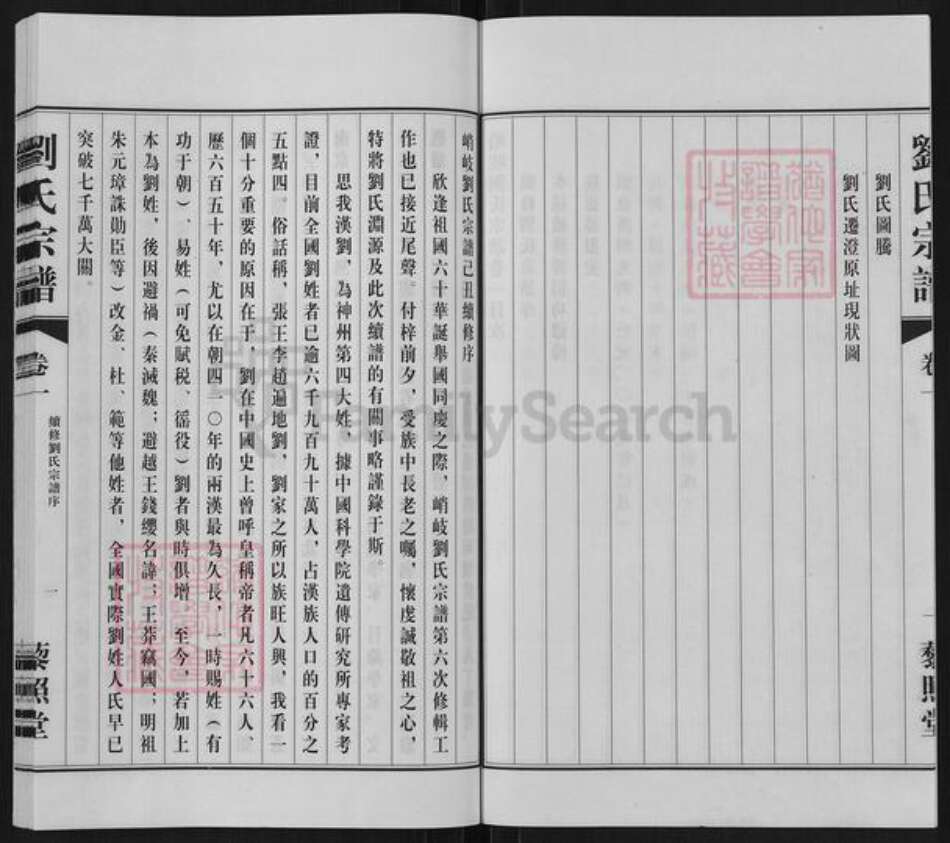 劉氏宗譜
卷一
一
藜照堂
劉氏圖騰
劉氏遷澄原址現狀圖
峭岐劉氏宗譜己丑續修序
欣逢祖國六十華誕舉國同慶之際，峭岐劉氏宗譜第六次修輯工
作也已接近尾聲，付梓前夕，受族中長老之囑，懷虔誠敬祖之心，
特將劉氏淵源及此次續譜的有關事略謹錄于斯。
思我漢劉，為神州第四大姓，據中國科學院遺傳研究所專家考
證，目前全國劉姓者已逾六千九百九十萬人，占漢族人口的百分之
五點四，俗話稱，張王李趙遍地劉，劉家之所以族旺人興，我看一
個十分重要的原因在于，劉在中國史上曾呼皇稱帝者凡六十六人，
歷六百五十年，尤以在朝四一〇年的兩漢最為久長，一時賜姓（有
功于朝）、易姓（可免賦税、徭役）劉者與時俱增，至今，若加上
本為劉姓，後因避禍（秦滅魏；避越王錢纓名諱；王莽竊國；明祖
朱元璋誅勛臣等）改金、杜、範等他姓者，全國實際劉姓人氏早已
突破七千萬大關。
劉氏宗譜
卷一
續修劉氏宗譜序
一
藜照堂
FamilySearch